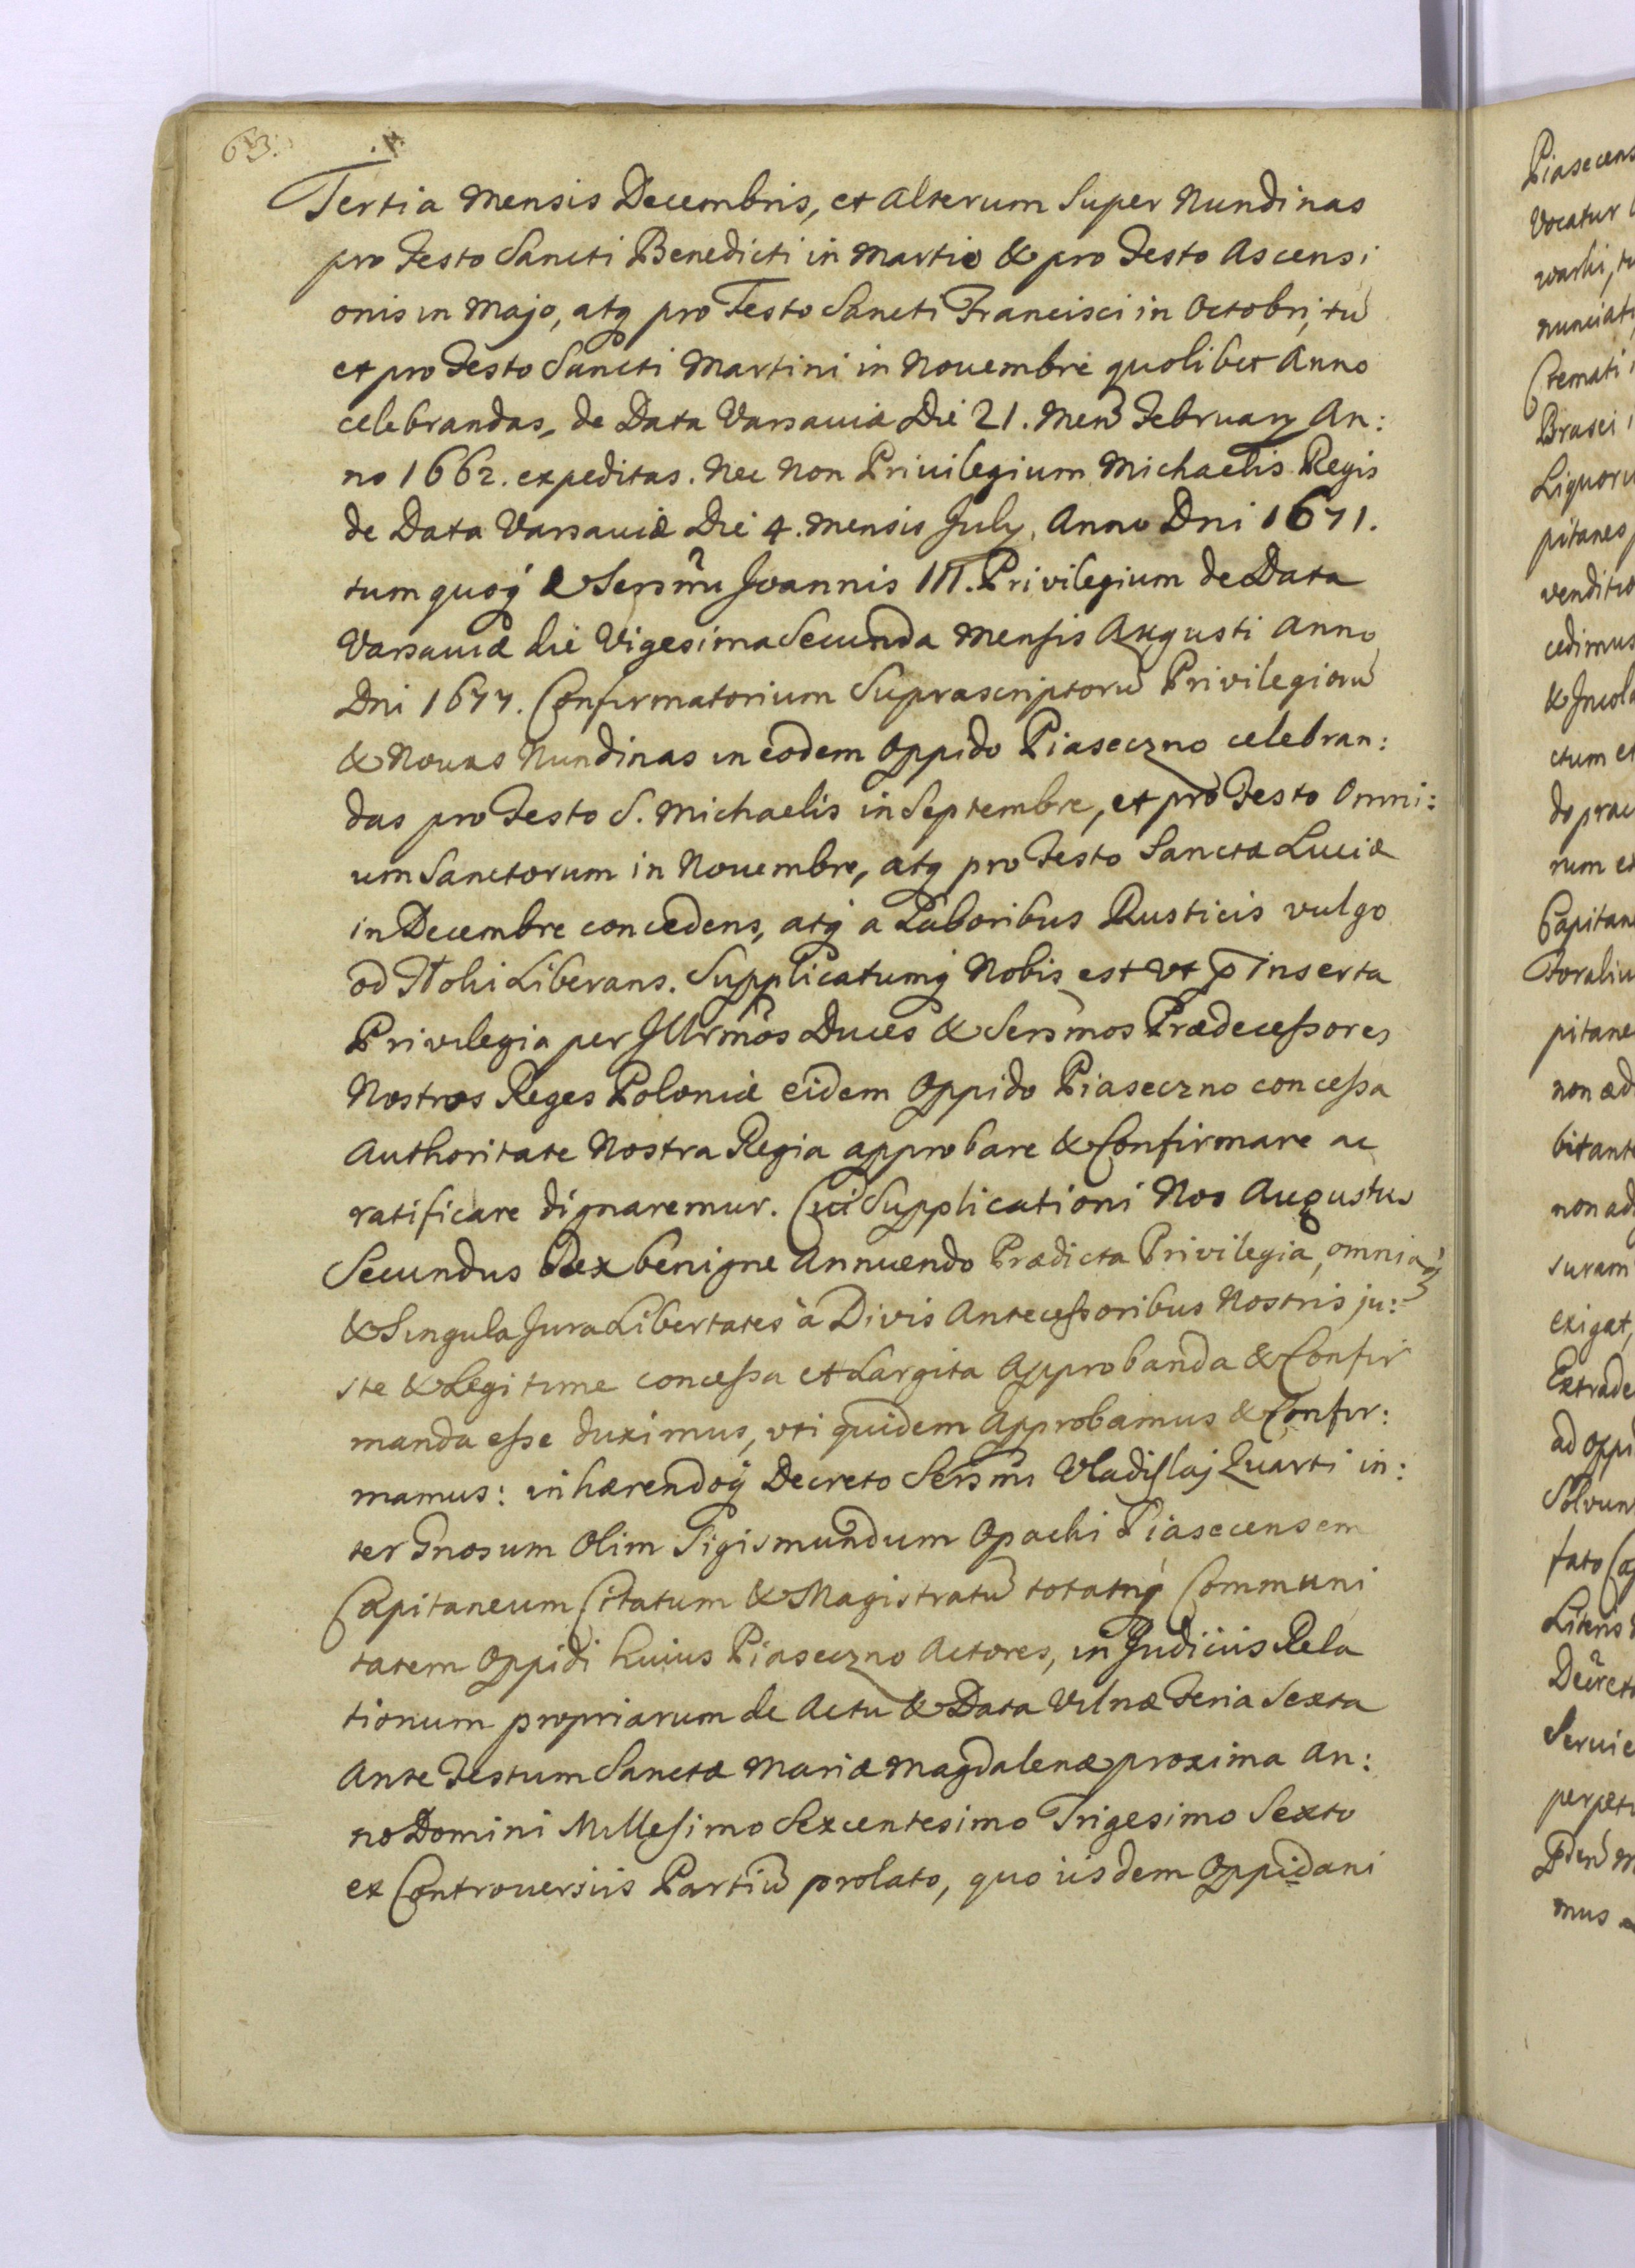 63.
Tertia Mensis Decembris, et alterum Super Nundinas
pro Festo Sancti Benedicti in Martio & pro Festo Ascensi
onis in Majo, atq pro Festo Sancti Francisci in Octobri, tũ
et pro Festo Sancti Martini in Nouembre quolibet Anno
celebrandas, de Data Varsauiæ Die 21. Men Februarÿ An:
no 1662. expeditas. Nec Non Priuilegium Michaelis Regis
de Data Varsauiæ Die 4. mensis Julÿ, Anno Dni 1671.
tum quoq & Sersmi Joannis III. Privilegium de Data
Varsauiæ die Vigesima Secunda Mensis Augusti Anno
Dni 1677. Confirmatorium Suprascriptorũ Privilegiorũ
& Nouas Nundinas in eodem Oppido Piaseczno celebran:
das pro Festo S. Michaelis in Septembre, et pro Festo Omni:
um Sanctorum in Nouembre, atq pro Festo Sanctæ Luciæ
in Decembre concedens, atq a Laboribus Rusticis vulgo
od Tłoki Liberans. Supplicatumq Nobis est vt p inserta
Privilegia per Illrmos Duces & Sersmos Prædecessores
Nostros Reges Poloniæ eidem Oppido Piaseczno concessa
Authoritate Nostra Regia approbare & Confirmare ac
ratificare dignaremur. Cui Supplicationi Nos Augustus
Secundus Rex benigne Annuendo Prædicta Privilegia, omniaq
& Singula Jura Libertates à Divis Antecessoribus Nostris ju:
ste & Legitime concessa et Largita Approbanda & Confir
manda esse duximus, vti quidem Approbamus & Confir:
mamus: inhærendoq Decreto Sersmi Vladislaj Quarti in:
ter Gnosum Olim Sigismundum Opacki Piasecensem
Capitaneum Citatum & Magistratũ totatnq Communi
tatem Oppidi huius Piaseczno Actores, in Judiciis Rela
tionum propriarum de Actu & Data Vilnæ Feria Sexta
Ante Festum Sanctæ Mariæ Magdalenæ proxima An:
no Domini Millesimo Sexcentesimo Trigesimo Sexto
ex Controuersiis Partiũ prolato, quo iisdem Oppidani
Piasecens
Vocatur
warki, tu
nunciati
Cremati
Brasei
Liquoru
pitaneo
venditio
cedimus
& Incola
ctum et
do prae
rum et
Capitane
foraliu
pitane
non ad
bitante
non ad
suram
exigat,
Extrade
ad oppi
Solvun
fato Ca
Literis
Decret
Servie
perpetu
mus